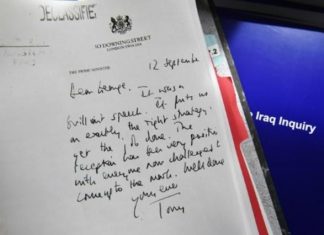 DECLASSIFIED
10 DOWNING STREET
LONDON SW1A 2AA
THE PRIME MINISTER
12 September
Dear George,
It was a
brilliant speech. It puts us
on exactly the right strategy,
get the job done. The
reception has been very positive
with everyone now challenged to
come up to the mark. Well done
Yours ever
Tony
Iraq Inquiry